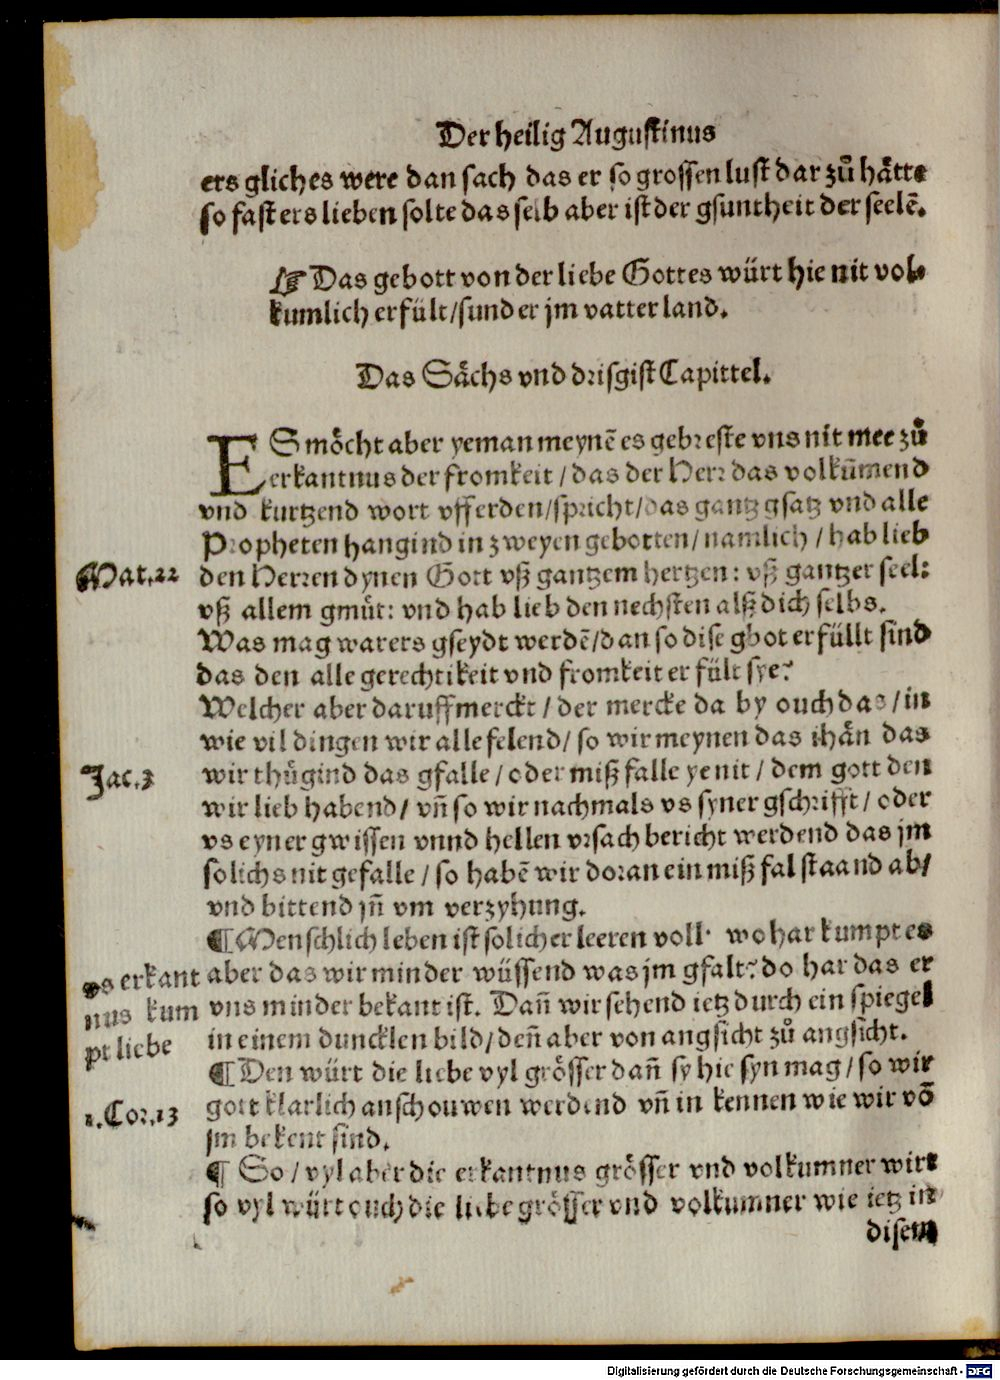 Der heilig Augustinus
ers glich es were dan sach das er so grossen lust dar zů hätte
so fast ers lieben solte das selb aber ist der gsuntheit der seelē.
☞ Das gebott von der liebe Gottes würt hie nit vol⸗
kumlich erfült/sunder jm vatterland.
Das Sächs vnd drisgist Capittel.
ES möcht aber yeman meynē es gebreste vns nit mee zů
erkantnus der fromkeit/das der Herr das volkūmend
vnd kurtzend wort vff erden/spricht/das gantz gsatz vnd alle
Propheten hangind in zweyen gebotten/namlich/hab lieb
Mat.22
den Herren dynen Gott vß gantzem hertzen: vß gantzer seel:
vß allem gmüt: vnd hab lieb den nechsten alß dich selbs.
Was mag warers gseydt werdē/dan so dise gbot erfüllt sind
das den alle gerechtikeit vnd fromkeit erfült sye?
Welcher aber daruff merckt/der mercke da by ouch das/in
wie vil dingen wir alle felend/so wir meynen das ihän das
Jac.3
wir thügind das gfalle/oder mißfalle yenit/dem gott den
wir lieb habend/vñ so wir nachmals vs syner gschrifft/oder
vs eyner gwissen vnnd hellen vrsach bericht werdend das jm
solichs nit gefalle/so habē wir doran ein mißfal staand ab/
vnd bittend jñ vm verzyhung.
¶ Menschlich leben ist solicher leeren voll. wo har kumpt es
vs erkant
nus kum
pt liebe
aber das wir minder wüssend was jm gfalt? do har das er
vns minder bekant ist. Dañ wir sehend ietz durch ein spiegel
in einem duncklen bild/deñ aber von angsicht zů angsicht.
¶ Den würt die liebe vyl grösser dañ sy hie syn mag/so wir
1.Cor.13
gott klarlich anschouwen werdend vñ in kennen wie wir vō
jm bekent sind.
¶ So/vyl aber die erkantnus grösser vnd volkumner wirt
so vyl würt ouch die liebe grösser vnd volkumner wie ietz in
disem
Digitalisierung gefördert durch die Deutsche Forschungsgemeinschaft - DFG